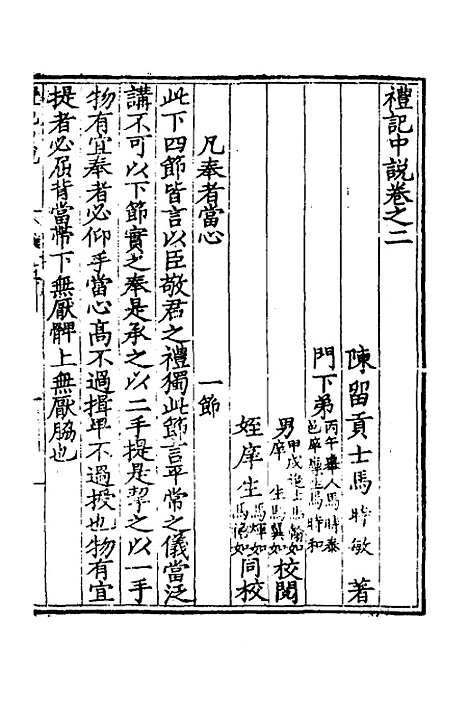 禮記中説卷之二
陳留貢士馬時敏著
門下弟
丙午舉人馬時泰
邑庠廩生馬時和
男
甲戌進士馬翰如
庠生馬翼如
校閲
姪庠生
馬燁如
馬如
同校
凡奉者當心 一節
此下四節皆言以臣敬君之禮獨此節言平常之儀當泛
講不可以下節實之奉是承之以二手提是挈之以一手
物有宜奉者必仰手當心高不過揖卑不過授也物有宜
提者必屈背當帶下無厭髀上無厭脇也